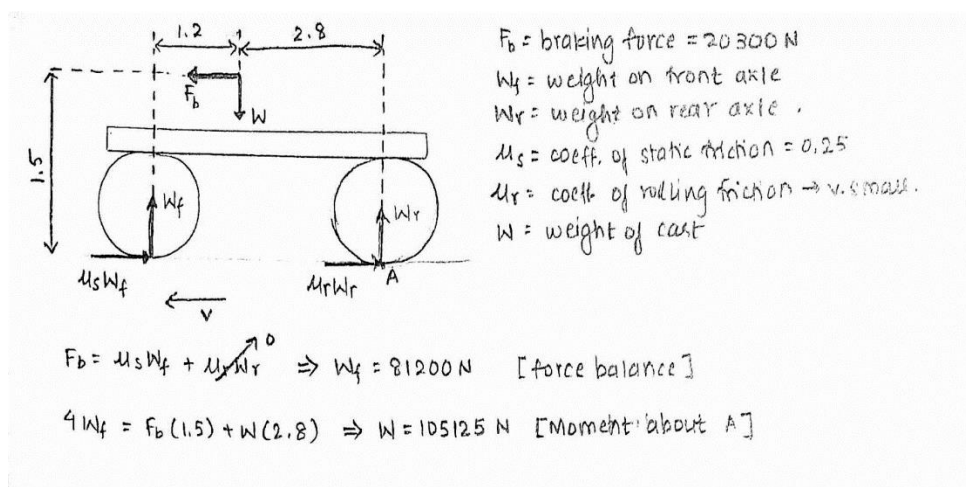 1.2 2.8
F_b = braking force = 20300 N
W_f = weight on front axle
W_r = weight on rear axle.
μ_s = coeff. of static friction = 0.25
μ_r = coeff of rolling friction → v. small.
W = weight of cart
F_b
W
1.5
W_f
W_r
μ_s W_f
μ_r W_r
A
V
F_b = μ_s W_f + μ_r W_r 0 ⇒ W_f = 81200 N [force balance]
4 W_f = F_b (1.5) + W (2.8) ⇒ W = 105125 N [Moment about A]